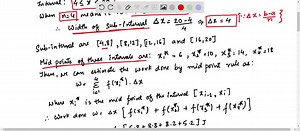 Interval: [4 ≤ x ≤
When n=4 means
∴ Width of Sub-interval Δx = 20-4/4 ⇒ Δx = 4 [∵ Δx = b-a/n]
Sub-interval are [4,8], [8,12], [12,16] and [16,20]
Mid points of three intervals are: x₁* = 6, x₂* = 10, x₃* = 14, x₄* = 18
Then, we can estimate the work done by mid point rule as:
W = Σ f(xᵢ*)·Δx
where xᵢ* is the mid point of the Interval [xᵢ₋₁, xᵢ]
∴ Work done W = Δx [f(x₁*) + f(x₂*) + f(x₃*) + f(x₄*)]
8.8 + 8.2 + 5.2]J